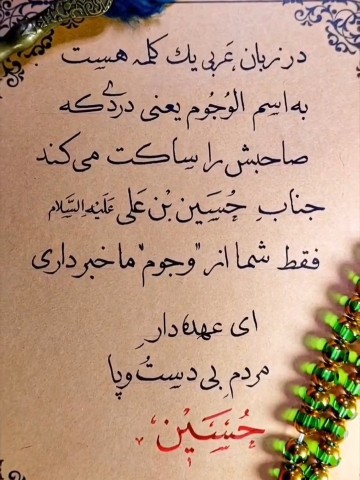 در زبان عَربی یك کلمه هست
به اسم الوُجُوم یعنی دردے که
صاحبش را ساکت می‌کند
جنابِ حُسَین بْن عَلی عَلَیهِ السَّلام
فقط شما از "وجوم" ما خبر داری
ای عهده‌دارِ
مردمِ بی دست‌ُ و پا
حُسَین